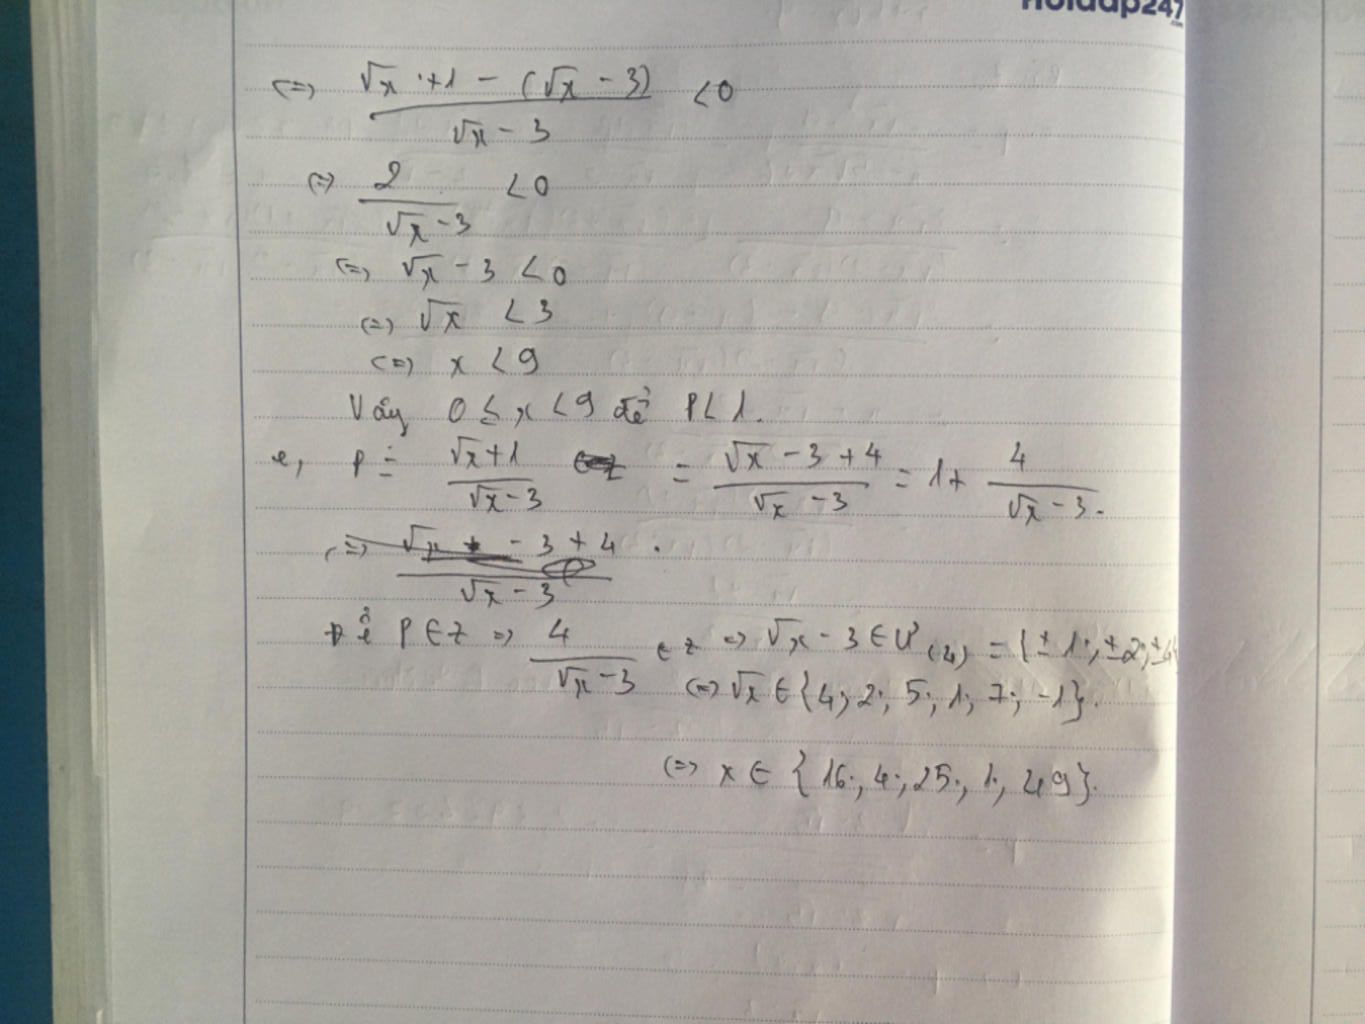 Hoidap247
<=> (√x + 1 - (√x - 3))/(√x - 3) < 0
(=) 2/(√x - 3) < 0
(=) √x - 3 < 0
(=) √x < 3
(=) x < 9
Vậy 0 ≤ x < 9 để P < 1.
e, P = (√x + 1)/(√x - 3) = (√x - 3 + 4)/(√x - 3) = 1 + 4/(√x - 3).
(=) (√x - 3 + 4)/(√x - 3) .
Để P ∈ Z => 4/(√x - 3) ∈ Z => √x - 3 ∈ Ư(4) = {±1; ±2; ±4}
(=) √x ∈ {4; 2; 5; 1; 7; -1}.
(=) x ∈ {16; 4; 25; 1; 49}.